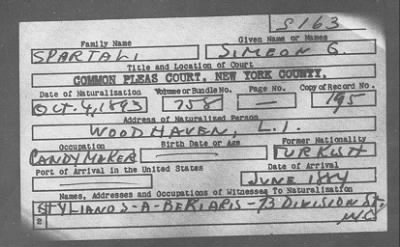 S163
Family Name Given Name or Names
SPARTALI SIMEON G.
Title and Location of Court
COMMON PLEAS COURT, NEW YORK COUNTY.
Date of Naturalization Volume or Bundle No. Page No. Copy of Record No.
OCT. 4, 1893 758 — 195
Address of Naturalized Person
WOODHAVEN, L.I.
Occupation Birth Date or Age Former Nationality
CANDY MAKER — TURKISH
Port of Arrival in the United States Date of Arrival
— JUNE 1884
Names, Addresses and Occupations of Witnesses To Naturalization
1 STYLIANOS-A-BERLARIS-73 DIVISION ST,
2 NYC